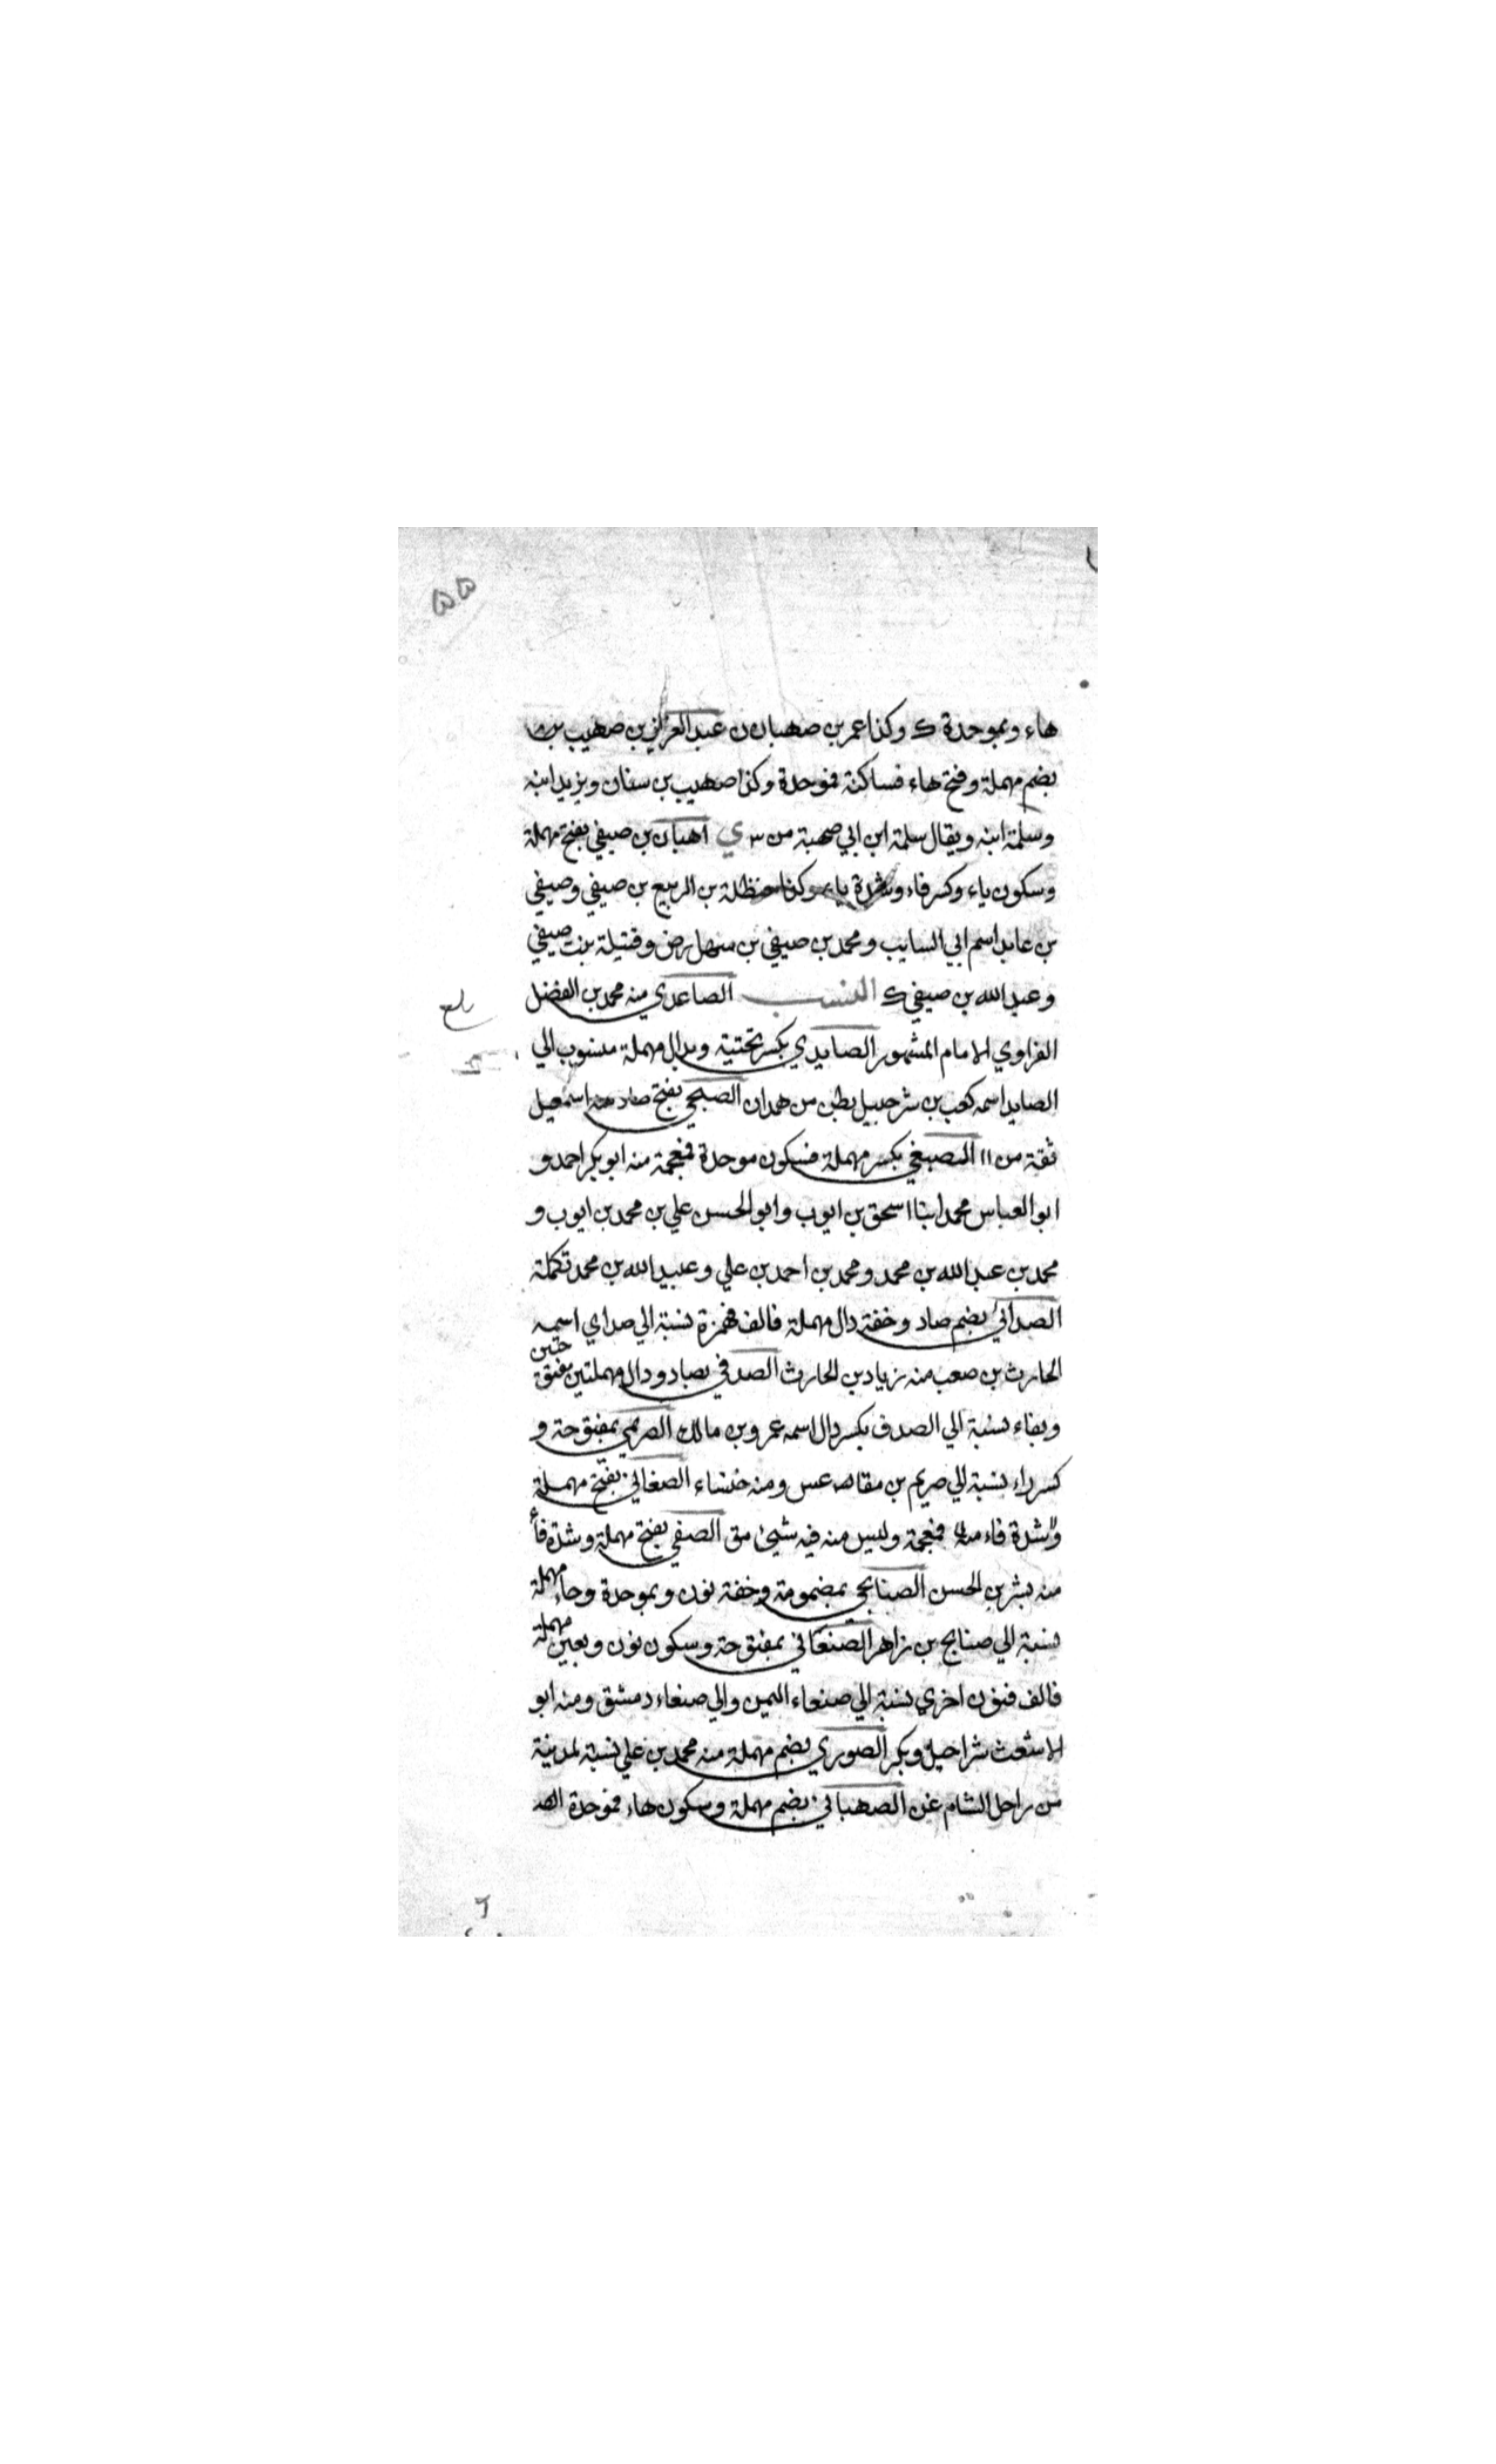 ٥٥
هاء وبموحدة ك وكذا عمر بن صهبان ن عبد العزيز بن صهيب
بضم مهملة وفتح هاء فساكنة فموحدة وكذا صهيب بن سنان ويزيد ابنه
وسلمة ابنه ويقال سلمة ابن ابي صهبة من س ي اهبان بن صيفي بفتح مهملة
وسكون ياء وكسر فاء وشدة ياء وكذا حنظلة بن الربيع بن صيفي وصيفي
بن عابد اسم ابي السايب ومحمد بن صيفي بن سهل رض وقتيلة بنت صيفي
وعبد الله بن صيفي ك النسب الصاعدي منه محمد بن الفضل
الفراوي الامام المشهور الصايدي بكسر تحتية وبدال مهملة منسوب الي
الصايد اسمه كعب بن شرحبيل بطن من همدان الصبحي بفتح صاد منه اسمعيل
ثقة من ١١ الصبغي بكسر مهملة فسكون موحدة فمعجمة منه ابو بكر احمد و
ابو العباس محمد ابنا اسحق بن ايوب وابو الحسن علي بن محمد بن ايوب و
محمد بن عبد الله بن محمد ومحمد بن احمد بن علي وعبيد الله بن محمد تكملة
الصدائي بضم صاد وخفة دال مهملة فالف فهمزة نسبة الي صداي اسمه
الحارث بن صعب منه زياد بن الحارث الصدفي بصاد ودال مهملتين مفتوحتين
وبفاء نسبة الي الصدف بكسر دال اسمه عمرو بن مالك الصريمي بمفتوحة و
كسر راء نسبة الي صريم بن مقاعس ومنه خنساء الصغاني بفتح مهملة
وشدة فاء فمعجمة وليس منه فيه شيئ مق الصفي بفتح مهملة وشدة فاء
منه بشر بن الحسن الصنابحي بمضمومة وخفة نون وبموحدة وحاء مهملة
نسبة الي صنابح بن زاهر الصنعاني بمفتوحة وسكون نون وبعين مهملة
فالف فنون اخري نسبة الي صنعاء اليمن والي صنعاء دمشق ومنه ابو
الاشعث شراحيل وبكر الصوري بضم مهملة منه محمد بن علي نسبة لمدينة
من راحل الشام غن الصهباني بضم مهملة وسكون هاء فموحدة